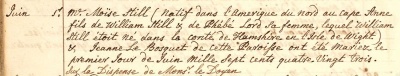 Juin 1r. Mr. Moïse Still (Natif dans l'amerique du nord au cape Anne
fils de William Still & de Phébé Lord sa femme, lequel William
Still étoit né dans la comté de Hamshire en l'Isle de Wight)
& Jeanne Le Bosquet de cette Paroisse ont été Mariez le
premier Jour de Juin Mille Sept cents quatre Vingt Trois.
par Dispense de Monsr. le Doyen